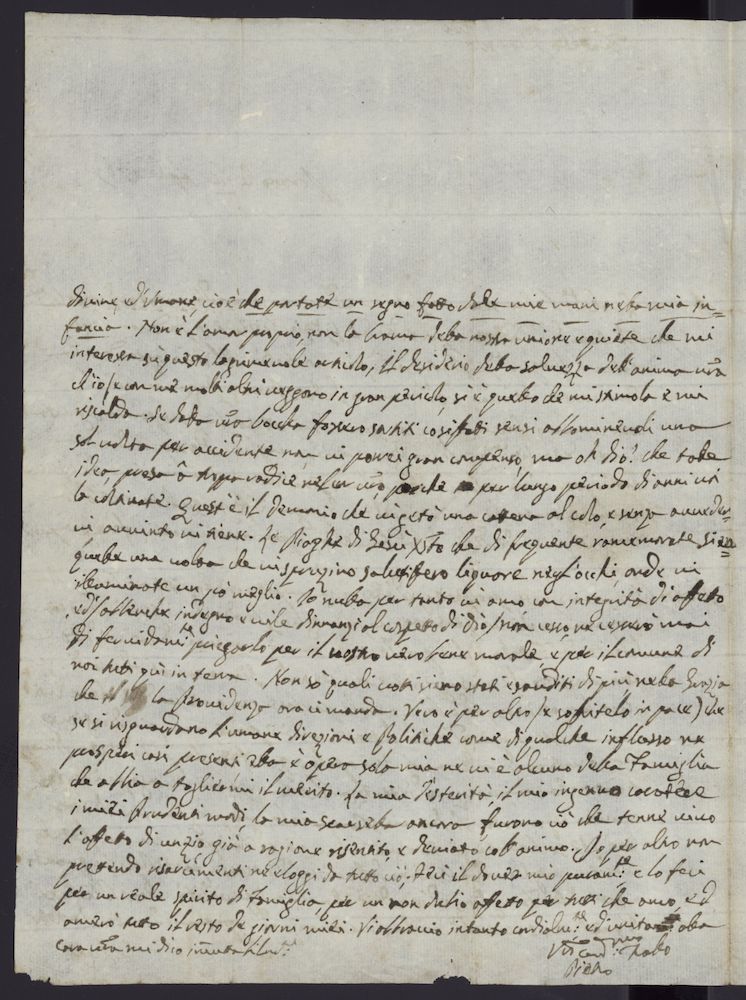 divine, ed umane, cioè che portate un segno fatto dalle mie mani nella mia in=
fancia. Non è l'amor proprio, non la brama della nostra unione e quiete che mi
interessa su questo lagrimevole articolo, il desiderio della salvezza dell'anima vra
ch'io, e con me molti altri veggono in gran pericolo, si è quello che mi stimola e mi
riscalda. Se dalla vra bocca fossero sortiti cosiffatti sensi abbominevoli una
sol volta per accidente non vi porrei gran compenso, ma oh Dio! che tale
idea, prese ô troppo radice nel cor vro, perchè per lungo periodo di anni voi
la coltivate. Quest'è il Demonio che vi gettò una catena al colo, e senza avveder=
vi avvinto vi tiene. Le Piaghe di Gesù Xsto che di frequente rammemorate
quelle una volta che vi spruzzino salutifero liquore negl'occhi onde vi
illuminate un pò meglio. Io nulla per tanto vi amo con integrità di affetto
ed sebbene indegno e vile dinnanzi al cospetto di Dio, non cesso ne cesserò mai
di fervidamte priegarlo per il vostro vero bene morale, e per il comune di
noi tutti quì in terra. Non sò quali voti sieno stati esauditi di più nella Grazia
che la Provvidenza ora ci manda. Vero è per altro (e soffritelo in pace) che
se si risguardano l'umane direzioni e Politiche come di qualche influsso ne
prosperi casi presenti ella è opera sola mia ne vi è alcuno della Famiglia
che abbia a togliermi il merito. La mia desterità, il mio ingenuo carattere
i miei Prudenti modi, la mia ancora furono ciò che tenne vivo
l'affetto di un zio già a ragione risentito, e deviato coll'animo. Io per altro non
pretendo risarcimenti ne elloggi da tutto ciò, feci il dover mio puramte e lo feci
per un reale spirito di Famiglia, per un non dubio affetto per tutti che amo, ed
amerò tutto il resto de giorni miei. Vi abbraccio intanto cordialmte ed unitamte alla
cara vra mi dico
Vro Frallo
Pietro